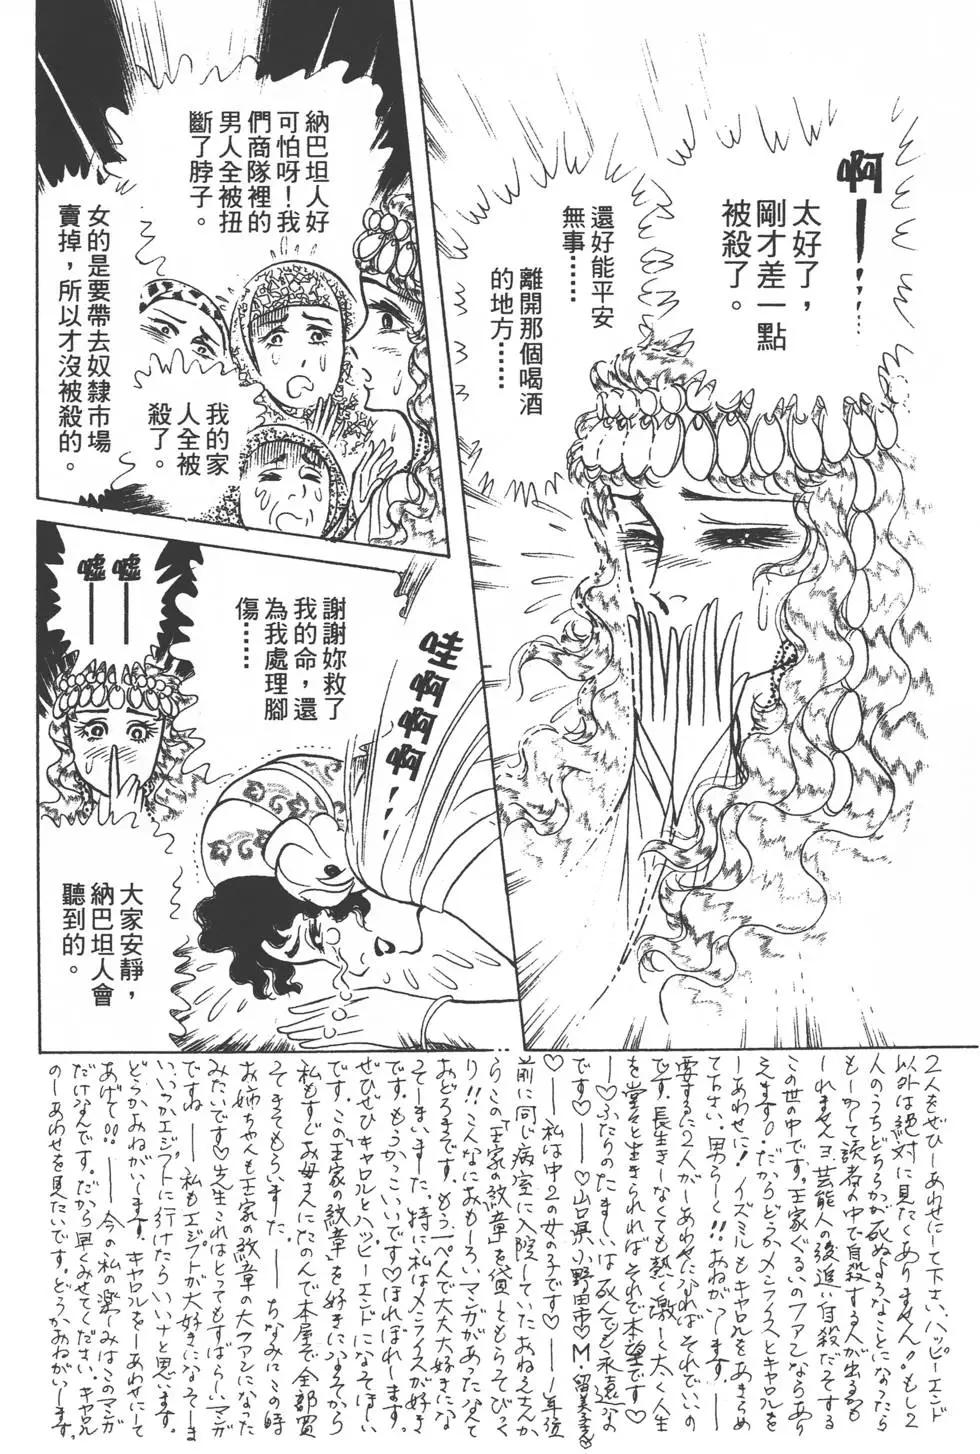 啊！……
太好了，
剛才差一點
被殺了。
還好能平安
無事……
離開那個喝酒
的地方……
納巴坦人好
可怕呀！我
們商隊裡的
男人全被扭
斷了脖子。
女的是要帶去奴隸市場
賣掉，所以才沒被殺的。
我的家
人全被
殺了。
哇啊啊啊……
謝謝妳救了
我的命，還
為我處理腳
傷……
噓——
噓——
大家安靜，
納巴坦人會
聽到的。
2人をぜひしあわせにして下さい、ハッピーエンド
以外は絶対に見たくありません。もし2
人のうちどちらかが死ぬようなことになったら
もしかして読者の中で自殺する人が出るかも
しれませんヨ。芸能人の後追い自殺だってする
この世の中です。王家ぐるいのファンならあり
えますヨ。だからどうかメンフィスとキャロルを
しあわせに！イズミルもキャロルをあきらめ
て下さい。男らしく!!おねがいします。——
要するに2人がしあわせになればそれでいいの
です。長生きしなくても熱く激しく太く人生
を堂々と生きられればそれで本望です♡
——♡ふたりのたましいは死んでも永遠な
です♡——♡山口県小野田市♡M・留美子さん
♡——私は中2の女の子です♡——1年位
前に同じ病室に入院していたおねえさんか
らこの「王家の紋章」を貸してもらってびっく
り!!こんなにおもしろいマンガがあったなんて
おどろきです。もう一ぺんで大大大好きにな
ってしまいました。特に私はメンフィスが好き
です。もうかっこいいです♡ほれぼれします。
ぜひぜひキャロルとハッピーエンドになってほしい
です。この「王家の紋章」を好きになってから
私もすぐお母さんにたのんで本屋で全部買
ってきてもらいました。——ちなみにこの時
お姉ちゃんも王家の紋章の大ファンになった
みたいです♡先生これはとってもすばらしいマンガ
ですね——私もエジプトが大好きになってしま
いいつかエジプトに行けたらいいナと思います。
どうかおねがいします、キャロルをしあわせにして
あげて!!——今の私の楽しみはこのマンガ
だけなんです。だから早くみせてください。キャロル
のしあわせを見たいです。どうかおねがいします。